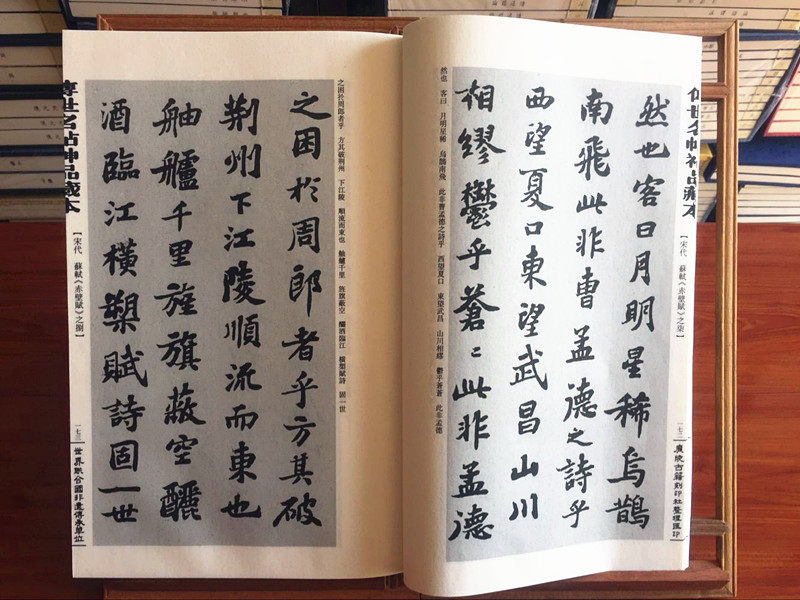 然也客曰月明星稀烏鵲
南飛此非曹孟德之詩乎
西望夏口東望武昌山川
相繆鬱乎蒼〻此非孟德
然也 客曰 月明星稀 烏鵲南飛 此非曹孟德之詩乎 西望夏口 東望武昌 山川相繆 鬱乎蒼蒼 此非孟德
【宋代 蘇軾《赤壁賦》之柒】
一七三
廣陵古籍刻印社整理匯印
之困於周郎者乎方其破
荆州下江陵順流而東也
舳艫千里旌旗蔽空釃
酒臨江橫槊賦詩固一世
之困於周郎者乎 方其破荆州 下江陵 順流而東也 舳艫千里 旌旗蔽空 釃酒臨江 橫槊賦詩 固一世
傳世名帖神品藏本
【宋代 蘇軾《赤壁賦》之捌】
一七三
世界聯合國非遺傳承單位